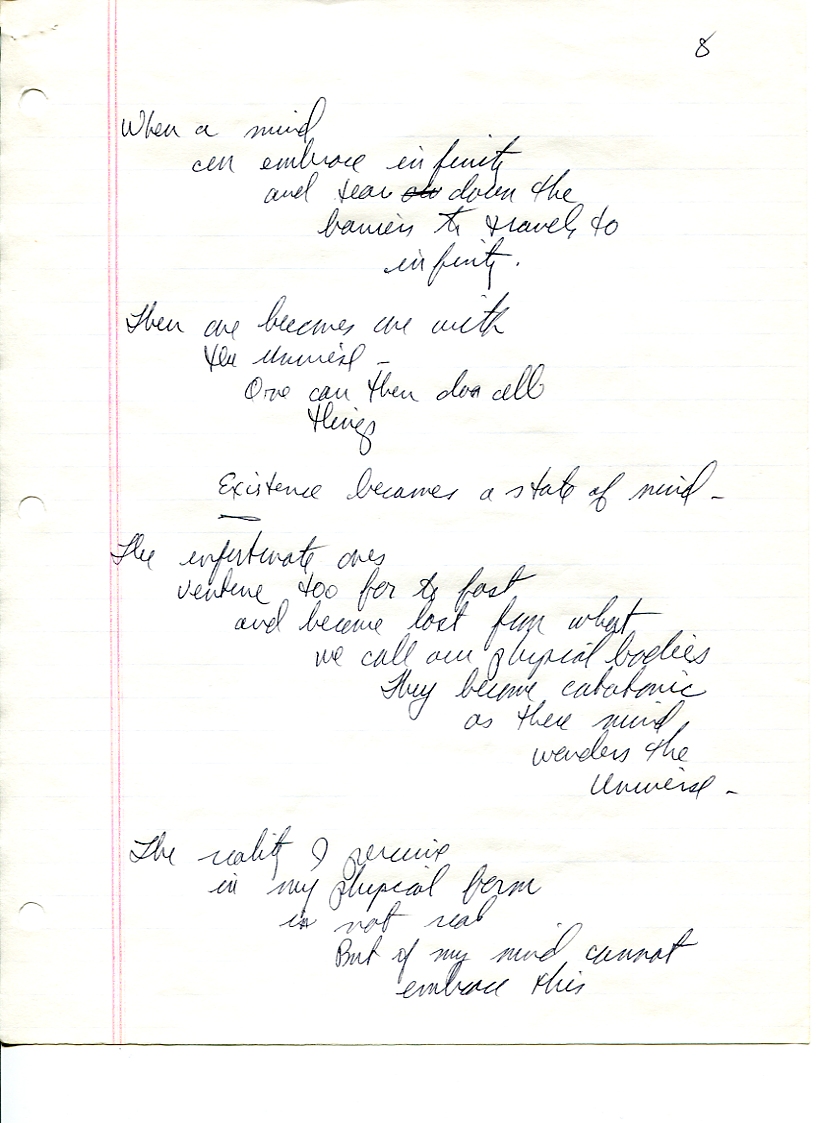 8
When a mind
can embrace infinity
and tear down the
barriers to travel, to
infinity.
Then one becomes one with
the Universe –
One can then do all
things
Existence becomes a state of mind –
The unfortunate ones
venture too far to fast
and become lost from what
we call our physical bodies
They become catatonic
as there mind
wanders the
Universe –
The reality I perceive
in my physical form
is not real
But if my mind cannot
embrace this